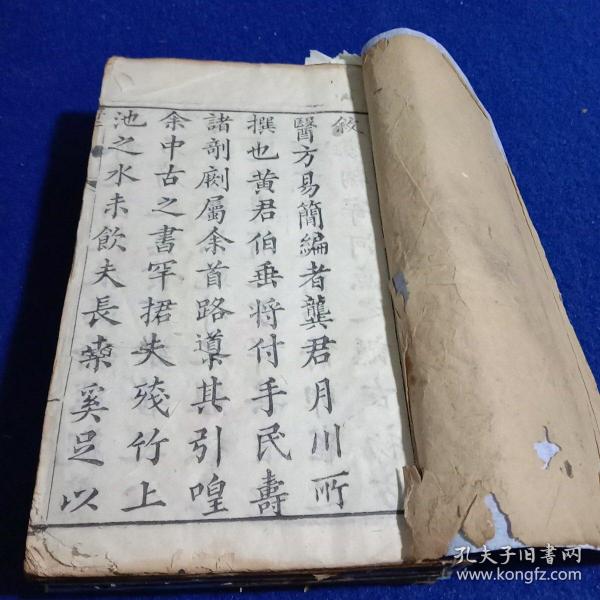 敘
醫方易簡編者龔君月川所
撰也黄君伯垂將付手民壽
諸剞劂屬余首路導其引喤
余中古之書罕捃失殘竹上
池之水未飲夫長桑奚足以
孔夫子旧书网
www.kongfz.com